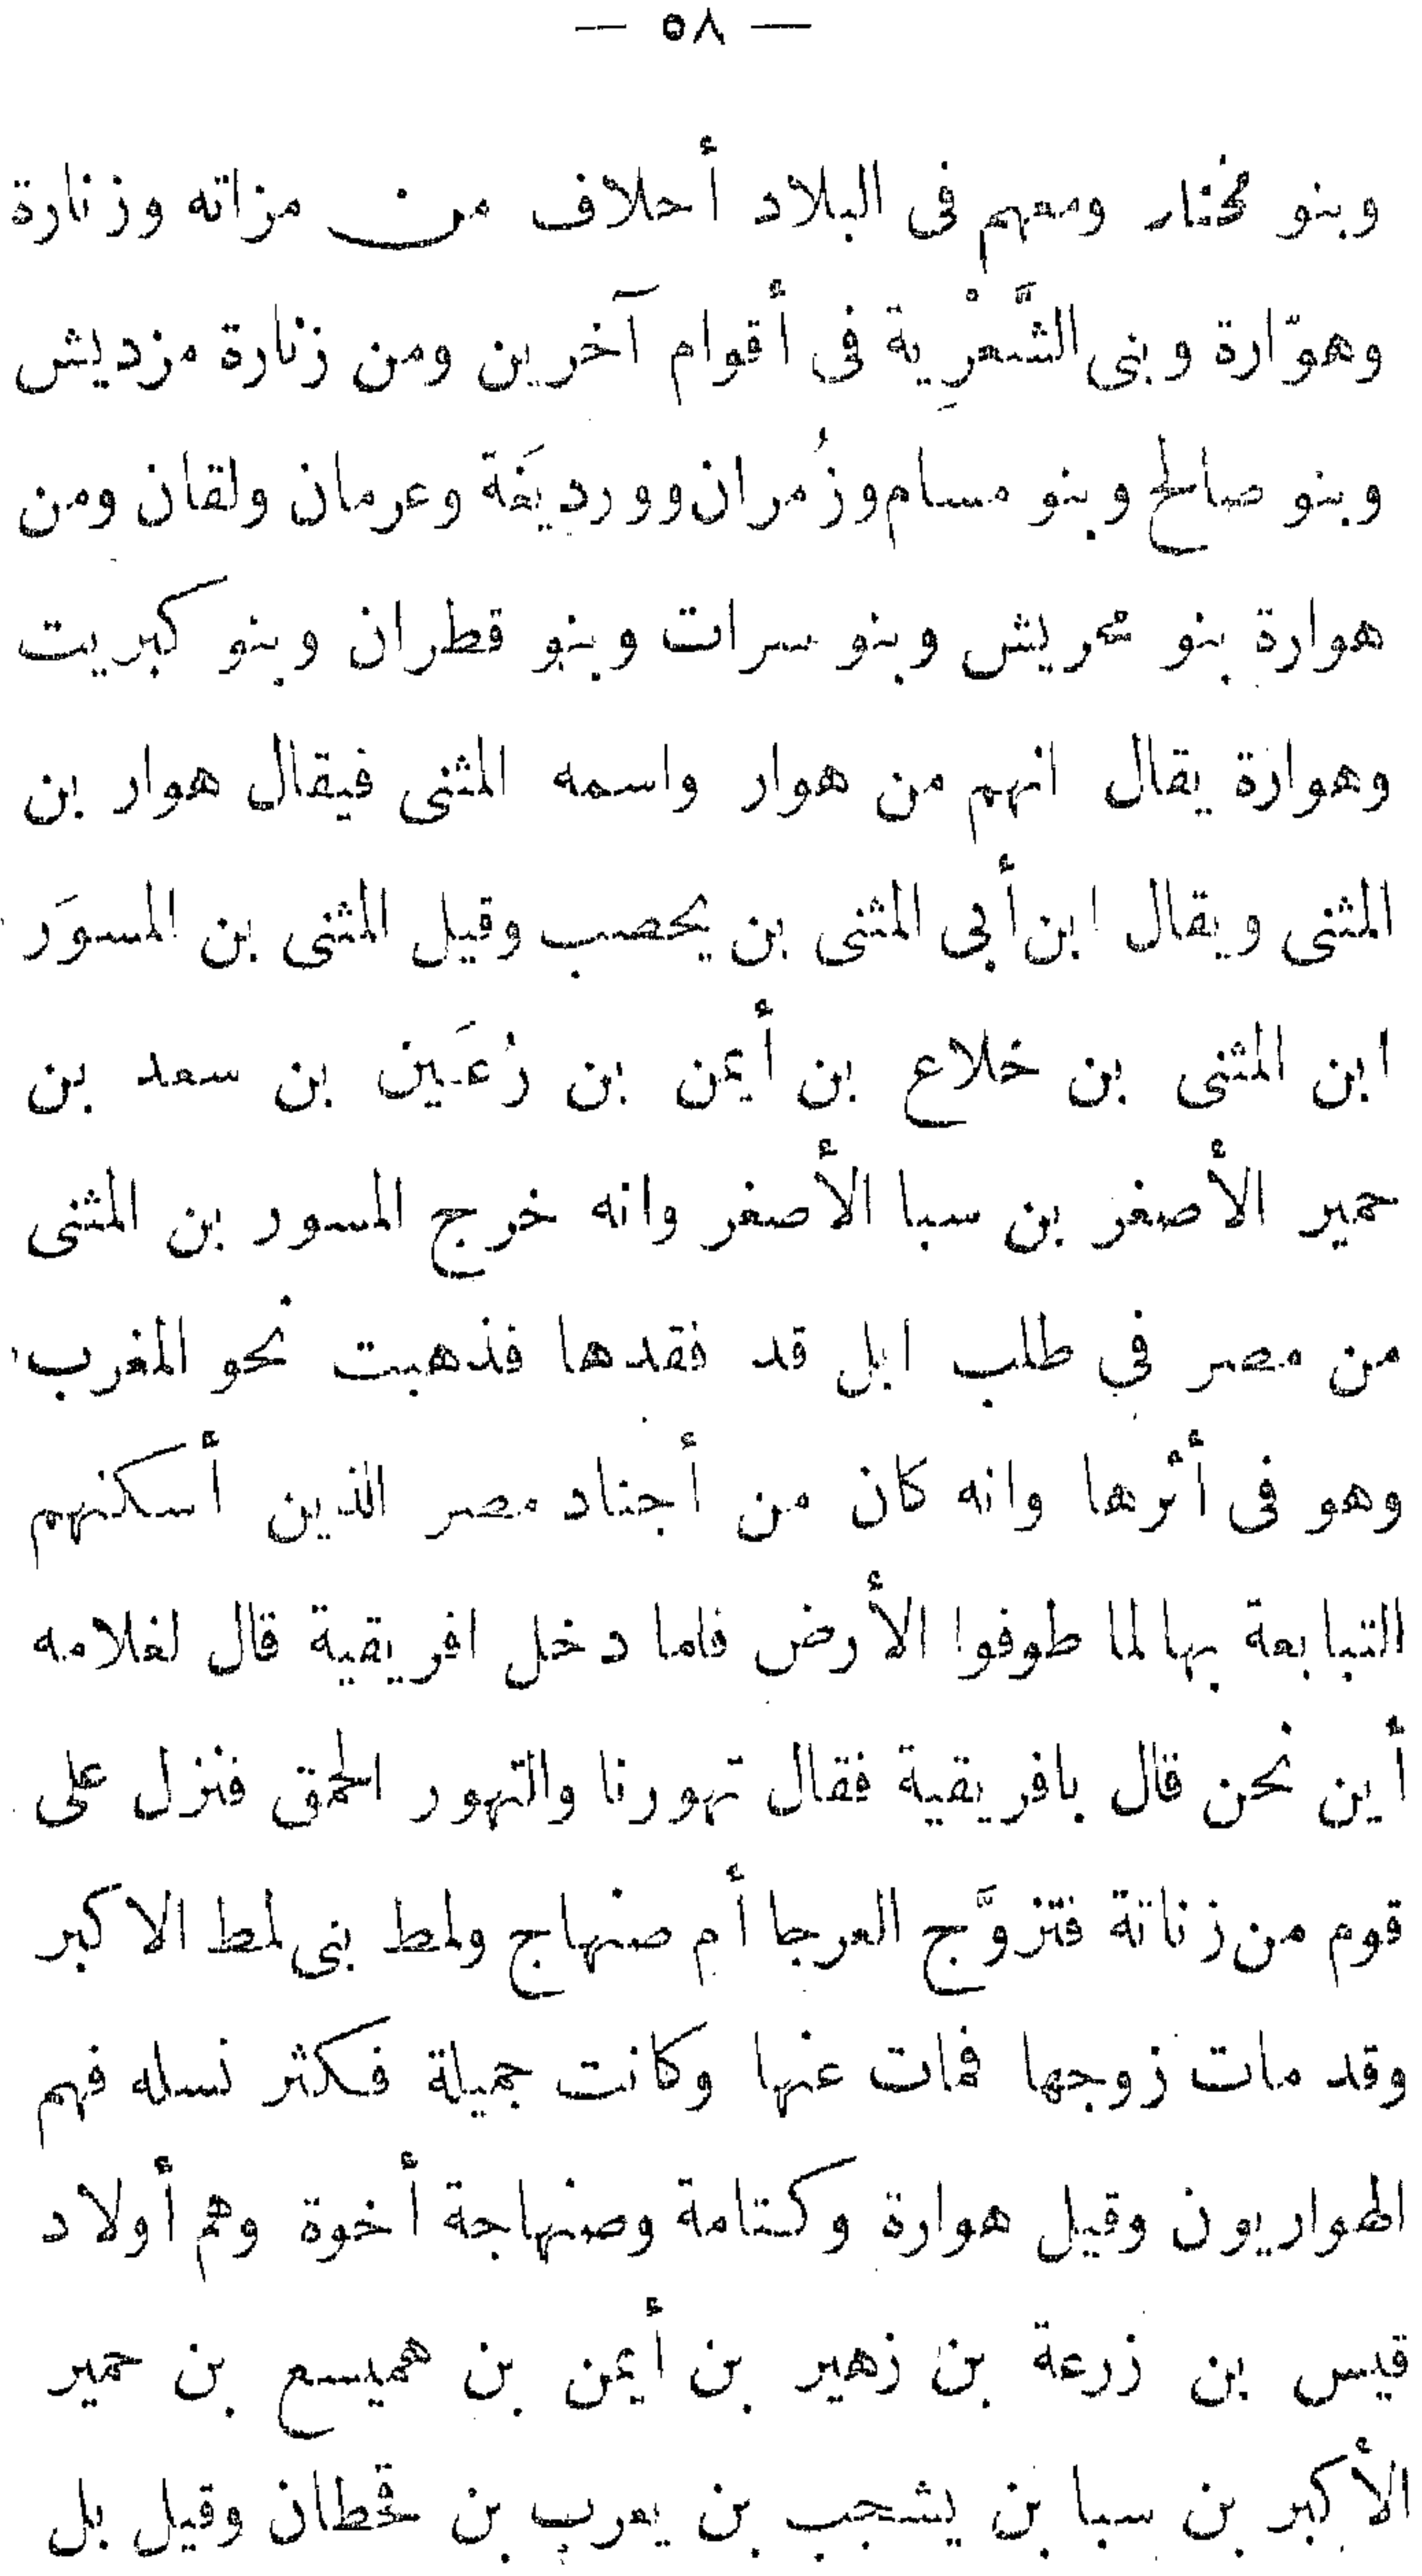 — ٥٨ —
وبنو مختار ومعهم فى البلاد أحلاف من مزاته وزنارة
وهوّارة وبنى الشَّعْرِية فى أقوام آخرين ومن زنارة مزديش
وبنو صالح وبنو مسام وزُمران وورديغَة وعرمان ولقان ومن
هوارة بنو محريش وبنو سرات وبنو قطران وبنو كبريت
وهوارة يقال انهم من هوار واسمه المثنى فيقال هوار بن
المثنى ويقال ابن أبى المثنى بن يحصب وقيل المثنى بن المسوَر
ابن المثنى بن خلاع بن أيمن بن رُعَين بن سعد بن
حمير الأصغر بن سبا الأصغر وانه خرج المسور بن المثنى
من مصر فى طلب ابل قد فقدها فذهبت نحو المغرب
وهو فى أثرها وانه كان من أجناد مصر الذين أسكنهم
التبابعة بها لما طوفوا الأرض فاما دخل افريقية قال لغلامه
أين نحن قال بافريقية فقال تهورنا والتهور الحمق فنزل على
قوم من زناتة فتزوَّج العرجا أم صنهاج ولمط بنى لمط الاكبر
وقد مات زوجها فمات عنها وكانت جميلة فكثر نسله فهم
الهواريون وقيل هوارة وكتامة وصنهاجة أخوة وهم أولاد
قيس بن زرعة بن زهير بن أيمن بن هميسع بن حمير
الأكبر بن سبا بن يشجب بن يعرب بن قحطان وقيل بل